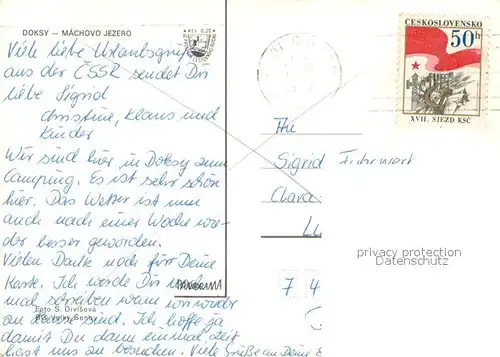 DOKSY — MÁCHOVO JEZERO
KčS 0,20
Viele liebe Urlaubsgrüße
aus der ČSSR sendet Dir
liebe Sigrid
Christine, Klaus und
Kinder
Wir sind hier in Doksy zum
Camping. Es ist sehr schön
hier. Das Wetter ist nun
auch nach einer Woche wie-
der besser geworden.
Vielen Dank noch für Deine
Karte. Ich werde Dir noch
mal schreiben wenn wir wieder
an sind. Ich hoffe ja
damit Du dann einmal Zeit
hast uns zu besuchen. Viele Grüße an Deine E
Foto S. Divišová
PANORAMA
ČESKOSLOVENSKO
50 h
XVII. SJEZD KSČ
Sigrid
Clara
privacy protection
Datenschutz
7 4